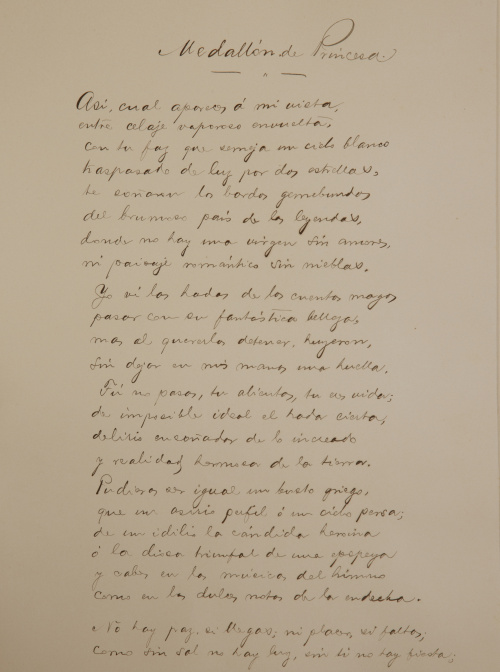 Medallón de Princesa
Asi, cual apareces á mi vista,
entre celaje vaporoso envuelta,
con tu faz que semeja un cielo blanco
traspasado de luz por dos estrellas,
te soñaron los bardos gemebundos
del brumoso país de las leyendas,
donde no hay una virgen sin amores,
ni paisaje romántico sin nieblas.
Yo vi las hadas de los cuentos magos
pasar con su fantástica belleza,
mas al quererlas detener, huyeron,
sin dejar en mis manos una huella.
Tú no pasas, tu alientas, tu es vida;
de imposible ideal el hada cierta,
delirio ensoñador de lo increado
y realidad hermosa de la tierra.
Pudieras ser igual un busto griego,
que un asirio perfil ó un cielo persa;
de un idilio la cándida heroina
ó la diosa triunfal de una epopeya
y cabes en las músicas del himno
como en las dulces notas de la endecha.
No hay paz si llegas; ni placer si faltas;
como sin sol no hay luz, sin ti no hay fiesta;